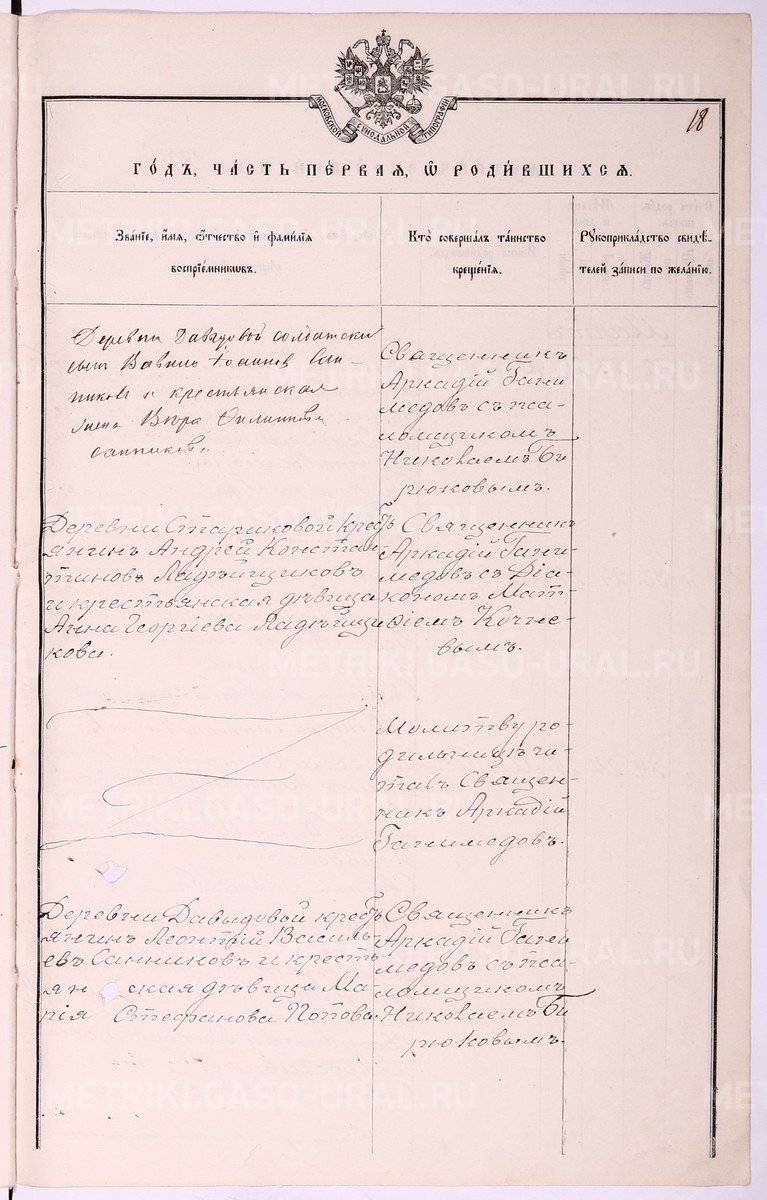 МОСКОВСКОЙ СѴНОДАЛЬНОЙ ТИПОГРАФІИ
18
ГО́ДЪ, ЧА́СТЬ ПЕ́РВАѦ, Ѿ РОДИ́ВШИХСѦ.
Зва́нїе, и҆́мѧ, ѻ҆́тчество и҆ фами́лїѧ
воспрїе́мникѡвъ.
Кто̀ соверша́лъ та́инство
креще́нїѧ.
Рꙋкоприкла́дство свидѣ́-
телей за́писи по жела́нїю.
Деревни Давыдовой солдатски
сын Вавило Іоаннов Сан-
ников и крестьянская
жена Вѣра Филиппова
Санникова.
Священникъ
Аркадій Гани-
медовъ съ пса-
ломщикомъ
Николаемъ Би-
рюковымъ.
Деревни Стариковой крест-
янинъ Андрей Констан-
тиновъ Ладѣйщиковъ
и крестьянская дѣвица
Анна Георгіева Ладѣйщи-
кова.
Священникъ
Аркадій Гани-
медовъ съ Діа-
кономъ Мат-
ѳіемъ Кочне-
вымъ.
Молитву ро-
дильницѣ чи-
талъ Священ-
никъ Аркадій
Ганимедовъ.
Деревни Давыдовой крест-
янинъ Леонтій Василь-
евъ Санниковъ и кресть-
янская дѣвица Ма-
рія Стефанова Попова.
Священникъ
Аркадій Гани-
медовъ съ пса-
ломщикомъ
Николаемъ Би-
рюковымъ.
METRIKI.GASO-URAL.RU